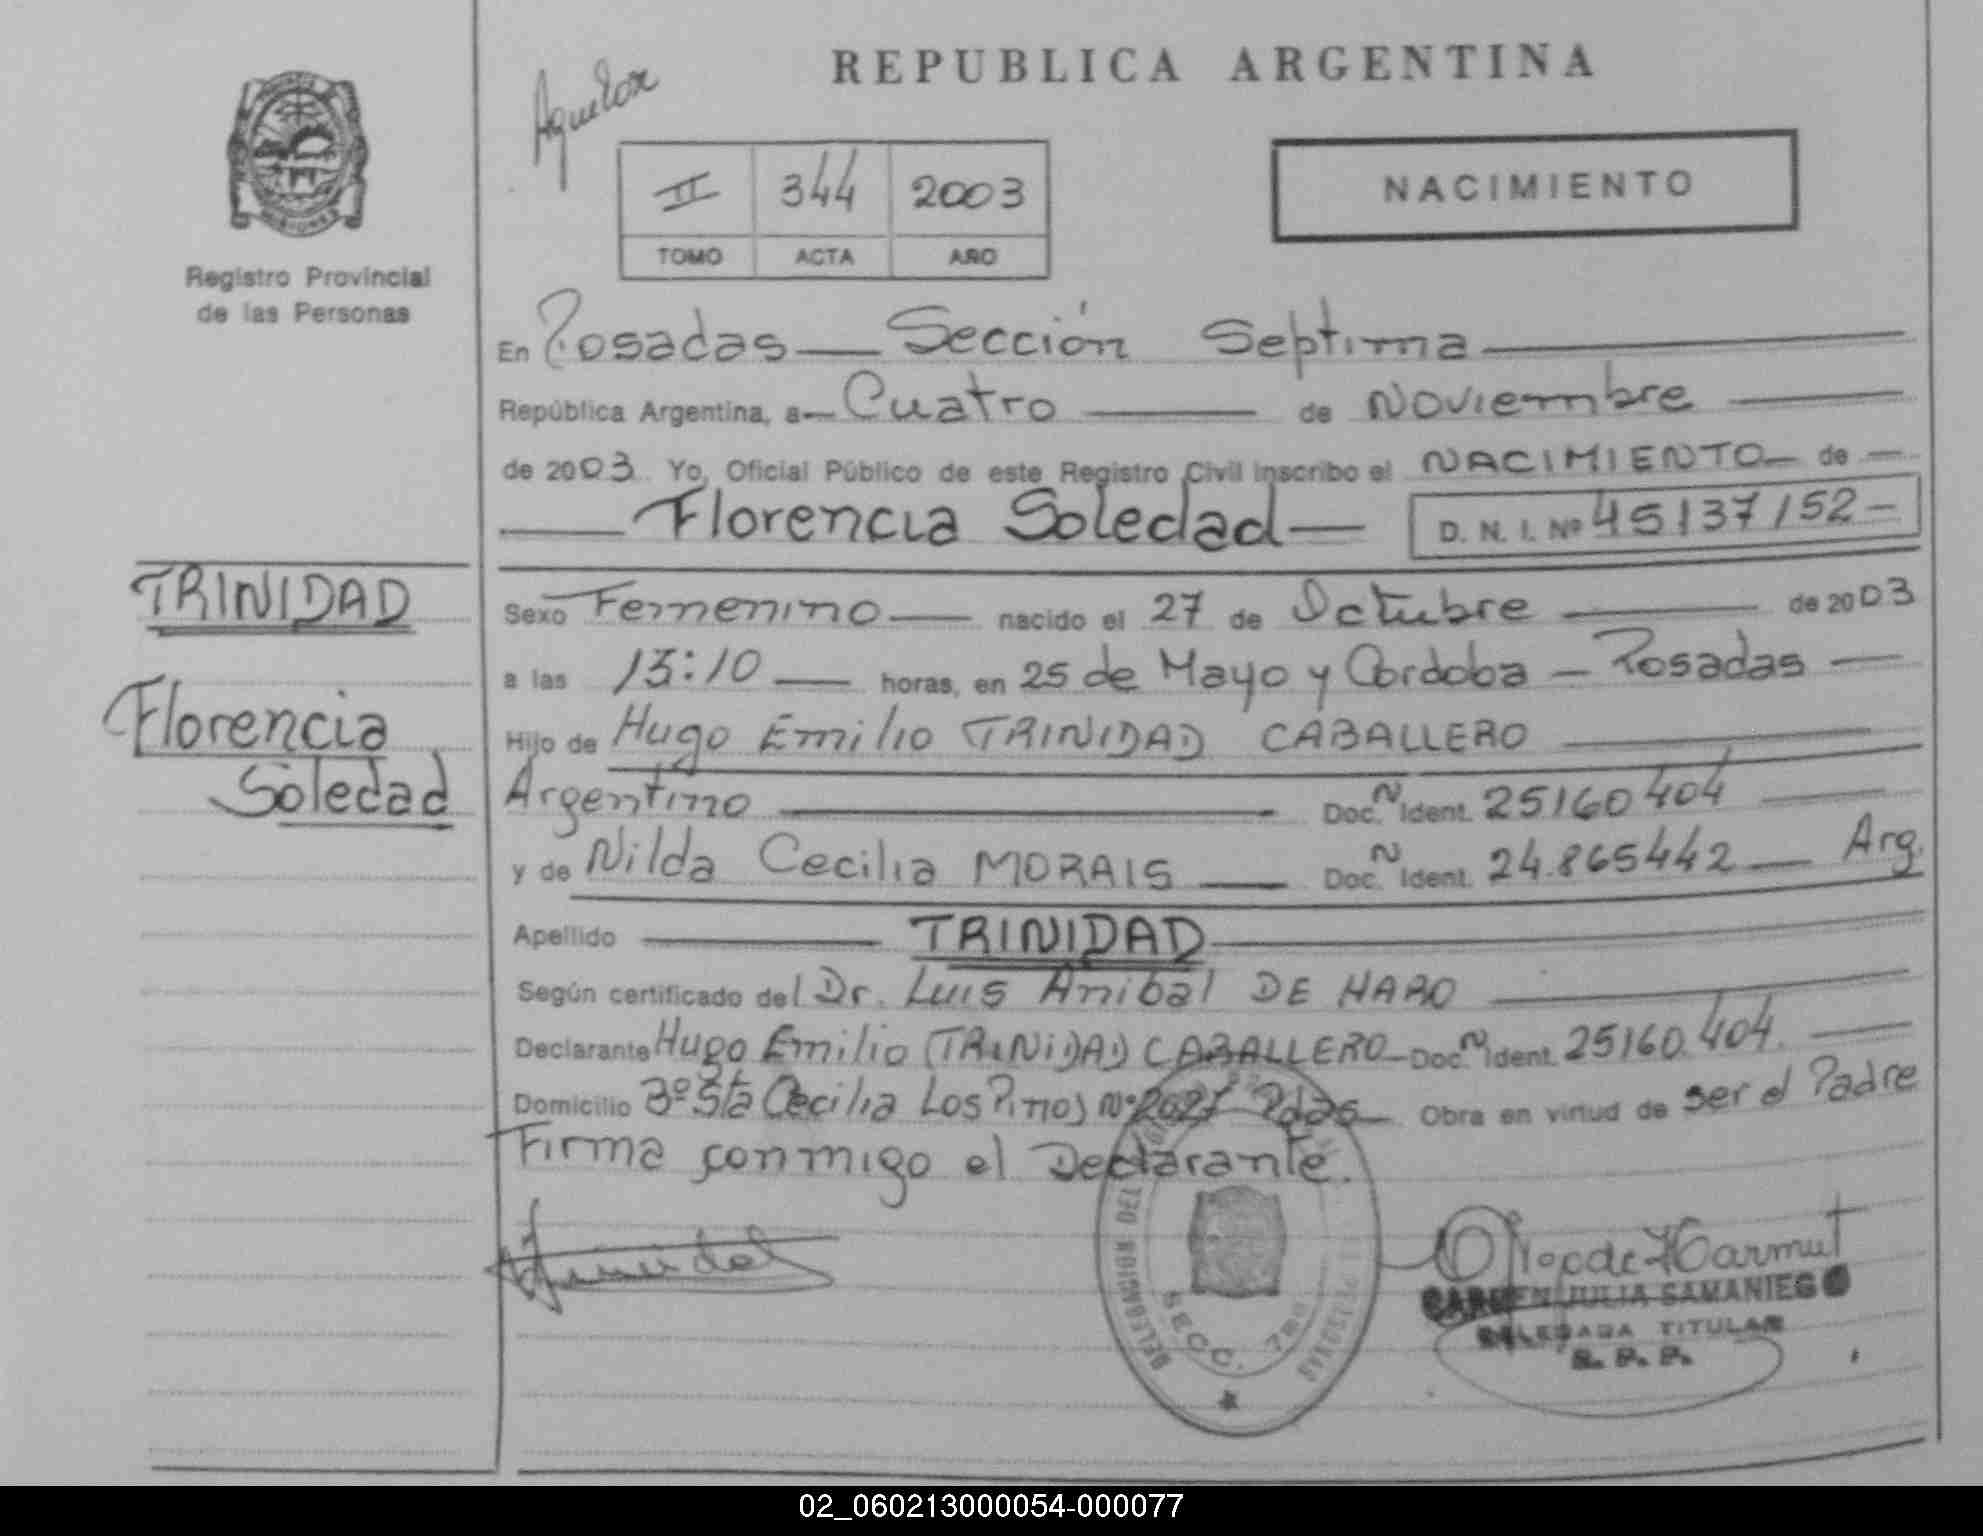 REPUBLICA ARGENTINA
II 344 2003
TOMO ACTA AÑO
NACIMIENTO
Registro Provincial
de las Personas
En Posadas — Sección Septima
República Argentina, a Cuatro de Noviembre
de 2003. Yo, Oficial Público de este Registro Civil inscribo el NACIMIENTO de
Florencia Soledad D. N. I. Nº 45137152
TRINIDAD
Florencia
Soledad
Sexo Femenino nacido el 27 de Octubre de 2003
a las 13:10 horas, en 25 de Mayo y Cordoba - Posadas
Hijo de Hugo Emilio (TRINIDAD) CABALLERO
Argentino Doc. N Ident. 25160404
y de Nilda Cecilia MORAIS Doc. N Ident. 24.865442 Arg.
Apellido TRINIDAD
Según certificado del Dr. Luis Anibal DE HARO
Declarante Hugo Emilio (TRINIDAD) CABALLERO Doc. N Ident. 25160.404.
Domicilio Bº Sta Cecilia Los Pinos Nº Pdas Obra en virtud de ser el Padre
Firma conmigo el Declarante.
SECC. 7ma
CARMEN JULIA SAMANIEGO
DELEGADA TITULAR
R. P. P.
02_060213000054-000077